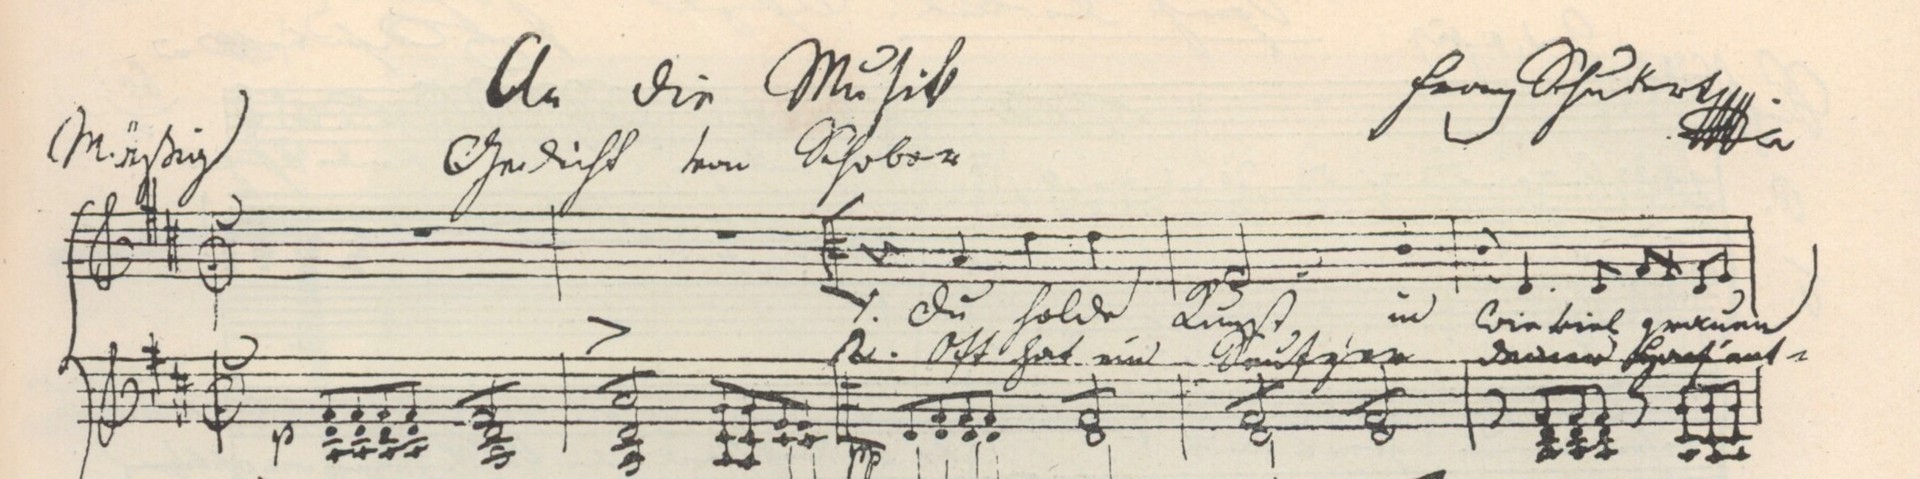 An die Musik
Franz Schubert
Mäßig
Gedicht von Schober
1. Du holde Kunst in wie viel grauen
2. Oft hat ein Seufzer deiner Harf' ent-
p
pp